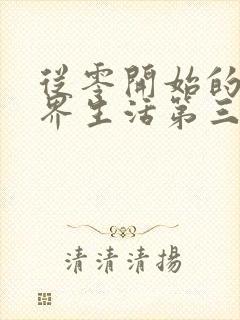 從零開始的
界生活第三
清清清揚